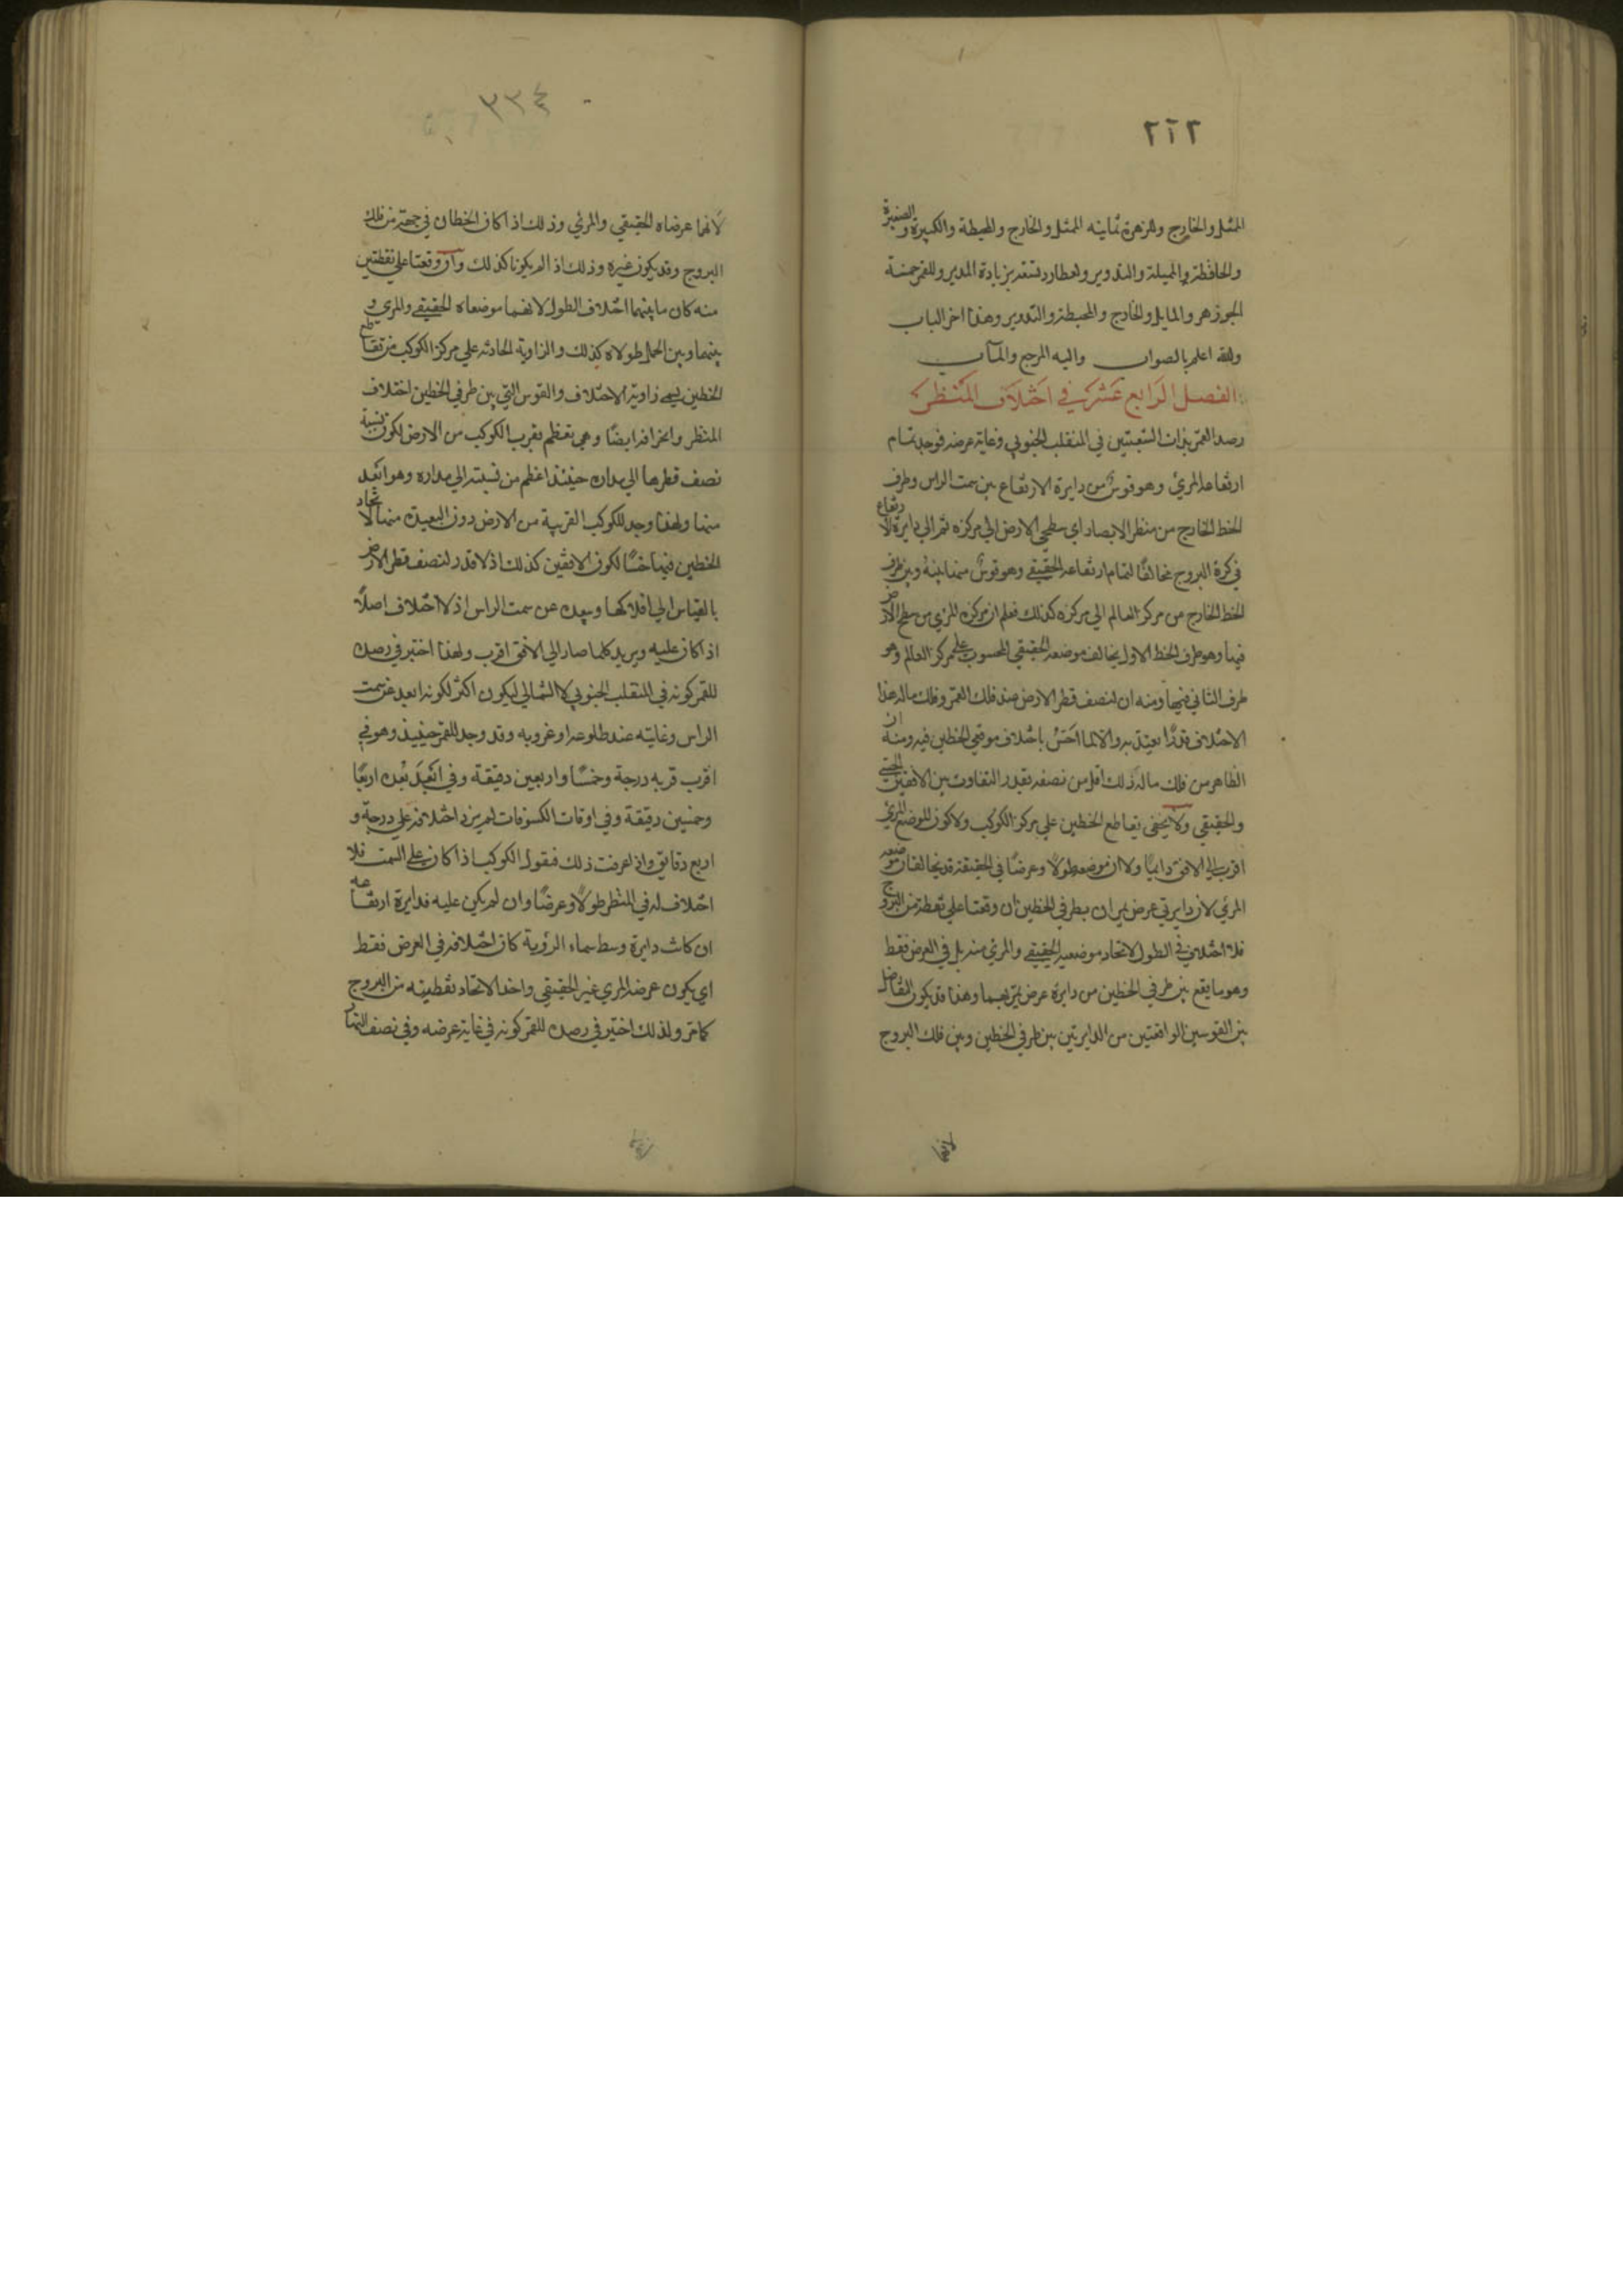 ٢٦٢
الممثل والخارج وللزهرة ثمانية الممثل والخارج والمحيطة والكبيرة والصغيرة
والحافظة والمميلة والتدوير ولعطارد تسعة بزيادة المدير وللقمر خمسة
الجوزهر والمايل والخارج والمحيطة والتدوير وهذا اخر الباب
والله اعلم بالصواب واليه المرجع والمآب
الفصل الرابع عشر في اختلاف المنظر
رصد القمر بذات الشعبتين في المنقلب الجنوبي وغاية عرضه فوجد تمام
ارتفاعه المرئي وهو قوس من دايرة الارتفاع بين سمت الراس وطرف
الخط الخارج من منظر الابصار اي سطح الارض الي مركزه ثم الي دايرة الارتفاع
في كرة البروج مخالفا لتمام ارتفاعه الحقيقي وهو قوس منها بينه وبين طرف
الخط الخارج من مركز العالم الي مركزه كذلك فعلم ان مركزه المرئي من سطح الارض
فيها وهو طرف الخط الاول يخالف موضعه الحقيقي المحسوب علي مركز العالم وهو
طرف الثاني فيها ومنه ان لنصف قطر الارض عند فلك القمر وفلك ماله هذا
الاختلاف قدرًا يعتد به والا لما احس باختلاف موقعي الخطين فيه ومنه ان
الظاهر من فلك ماله ذلك اقل من نصفه بقدر التفاوت بين الافقين الحسي
والحقيقي ولا يخفي تقاطع الخطين علي مركز الكوكب ولا كون الموضع المرئي
اقرب الي الافق دايمًا ولا ان موضعه طولًا وعرضًا في الحقيقة قد يخالفان موضعه
المرئي لان دايرتي عرض يمران بطرفي الخطين ان وقعتا علي نقطة من البروج
فلا اختلاف في الطول لاتحاد موضعيه الحقيقي والمرئي منه بل في العرض فقط
وهو ما يقع بين طرفي الخطين من دايرة عرض تمر بهما وهذا قد يكون التفاضل
بين القوسين الواقعتين من الدايرتين بين طرفي الخطين وبين فلك البروج
لانهما
٣٣٤
لانهما عرضاه الحقيقي والمرئي وذلك اذا كان الخطان في جهة من فلك
البروج وقد يكون غيره وذلك اذا لم يكونا كذلك وان وقعتا علي نقطتين
منه كان ما بينهما اختلاف الطول لانهما موضعاه الحقيقي والمرئي و
بينهما وبين الحمل طولاه كذلك والزاوية الحادثة علي مركز الكوكب من تقاطع
الخطين يسمي زاوية الاختلاف والقوس التي بين طرفي الخطين اختلاف
المنظر وانحرافه ايضًا وهي تعظم بقرب الكوكب من الارض لكون نسبة
نصف قطرها الي مداره حينئذ اعظم من نسبته الي مداره وهو ابعد
منها ولهذا وجد للكوكب القريبة من الارض دون البعيدة منها لاتحاد
الخطين فيها حسًا لكون الافقين كذلك اذ لا قدر لنصف قطر الارض
بالقياس الي افلاكها وببعده عن سمت الراس اذ لا اختلاف اصلًا
اذا كان عليه ويزيد كلما صار الي الافق اقرب ولهذا اختير في رصده
للقمر كونه في المنقلب الجنوبي لا الشمالي ليكون اكثر لكونه ابعد عن سمت
الراس وغايته عند طلوعه او غروبه وقد وجد للقمر حينيذ وهو في
اقرب قربه درجة وخمسًا واربعين دقيقة وفي ابعد بعده اربعًا
وخمسين دقيقة وفي اوقات الكسوفات لم يزد اختلافه علي درجة و
اربع دقايق واذا عرفت ذلك فنقول الكوكب اذا كان علي السمت فلا
اختلاف له في المنظر طولًا وعرضًا وان لم يكن عليه فدايرة ارتفاعه
ان كانت دايرة وسط سماء الرؤية كان اختلافه في العرض فقط
اي يكون عرضه المرئي غير الحقيقي واخذ الاتحاد نقطتيه من البروج
كما مر ولذلك اختير في رصده للقمر كونه في غاية عرضه وفي نصف النهار